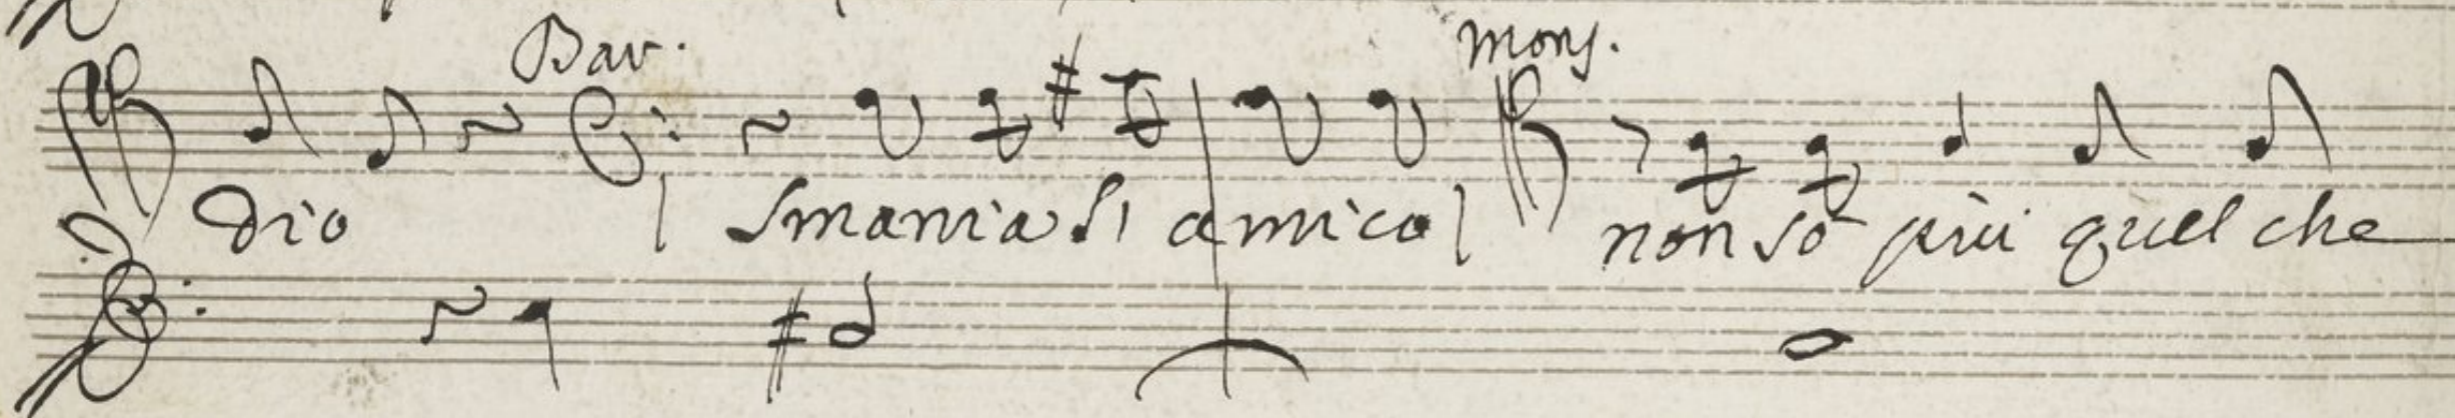 Bav. Mons.
dio | Smania Si amico | non so più quel che